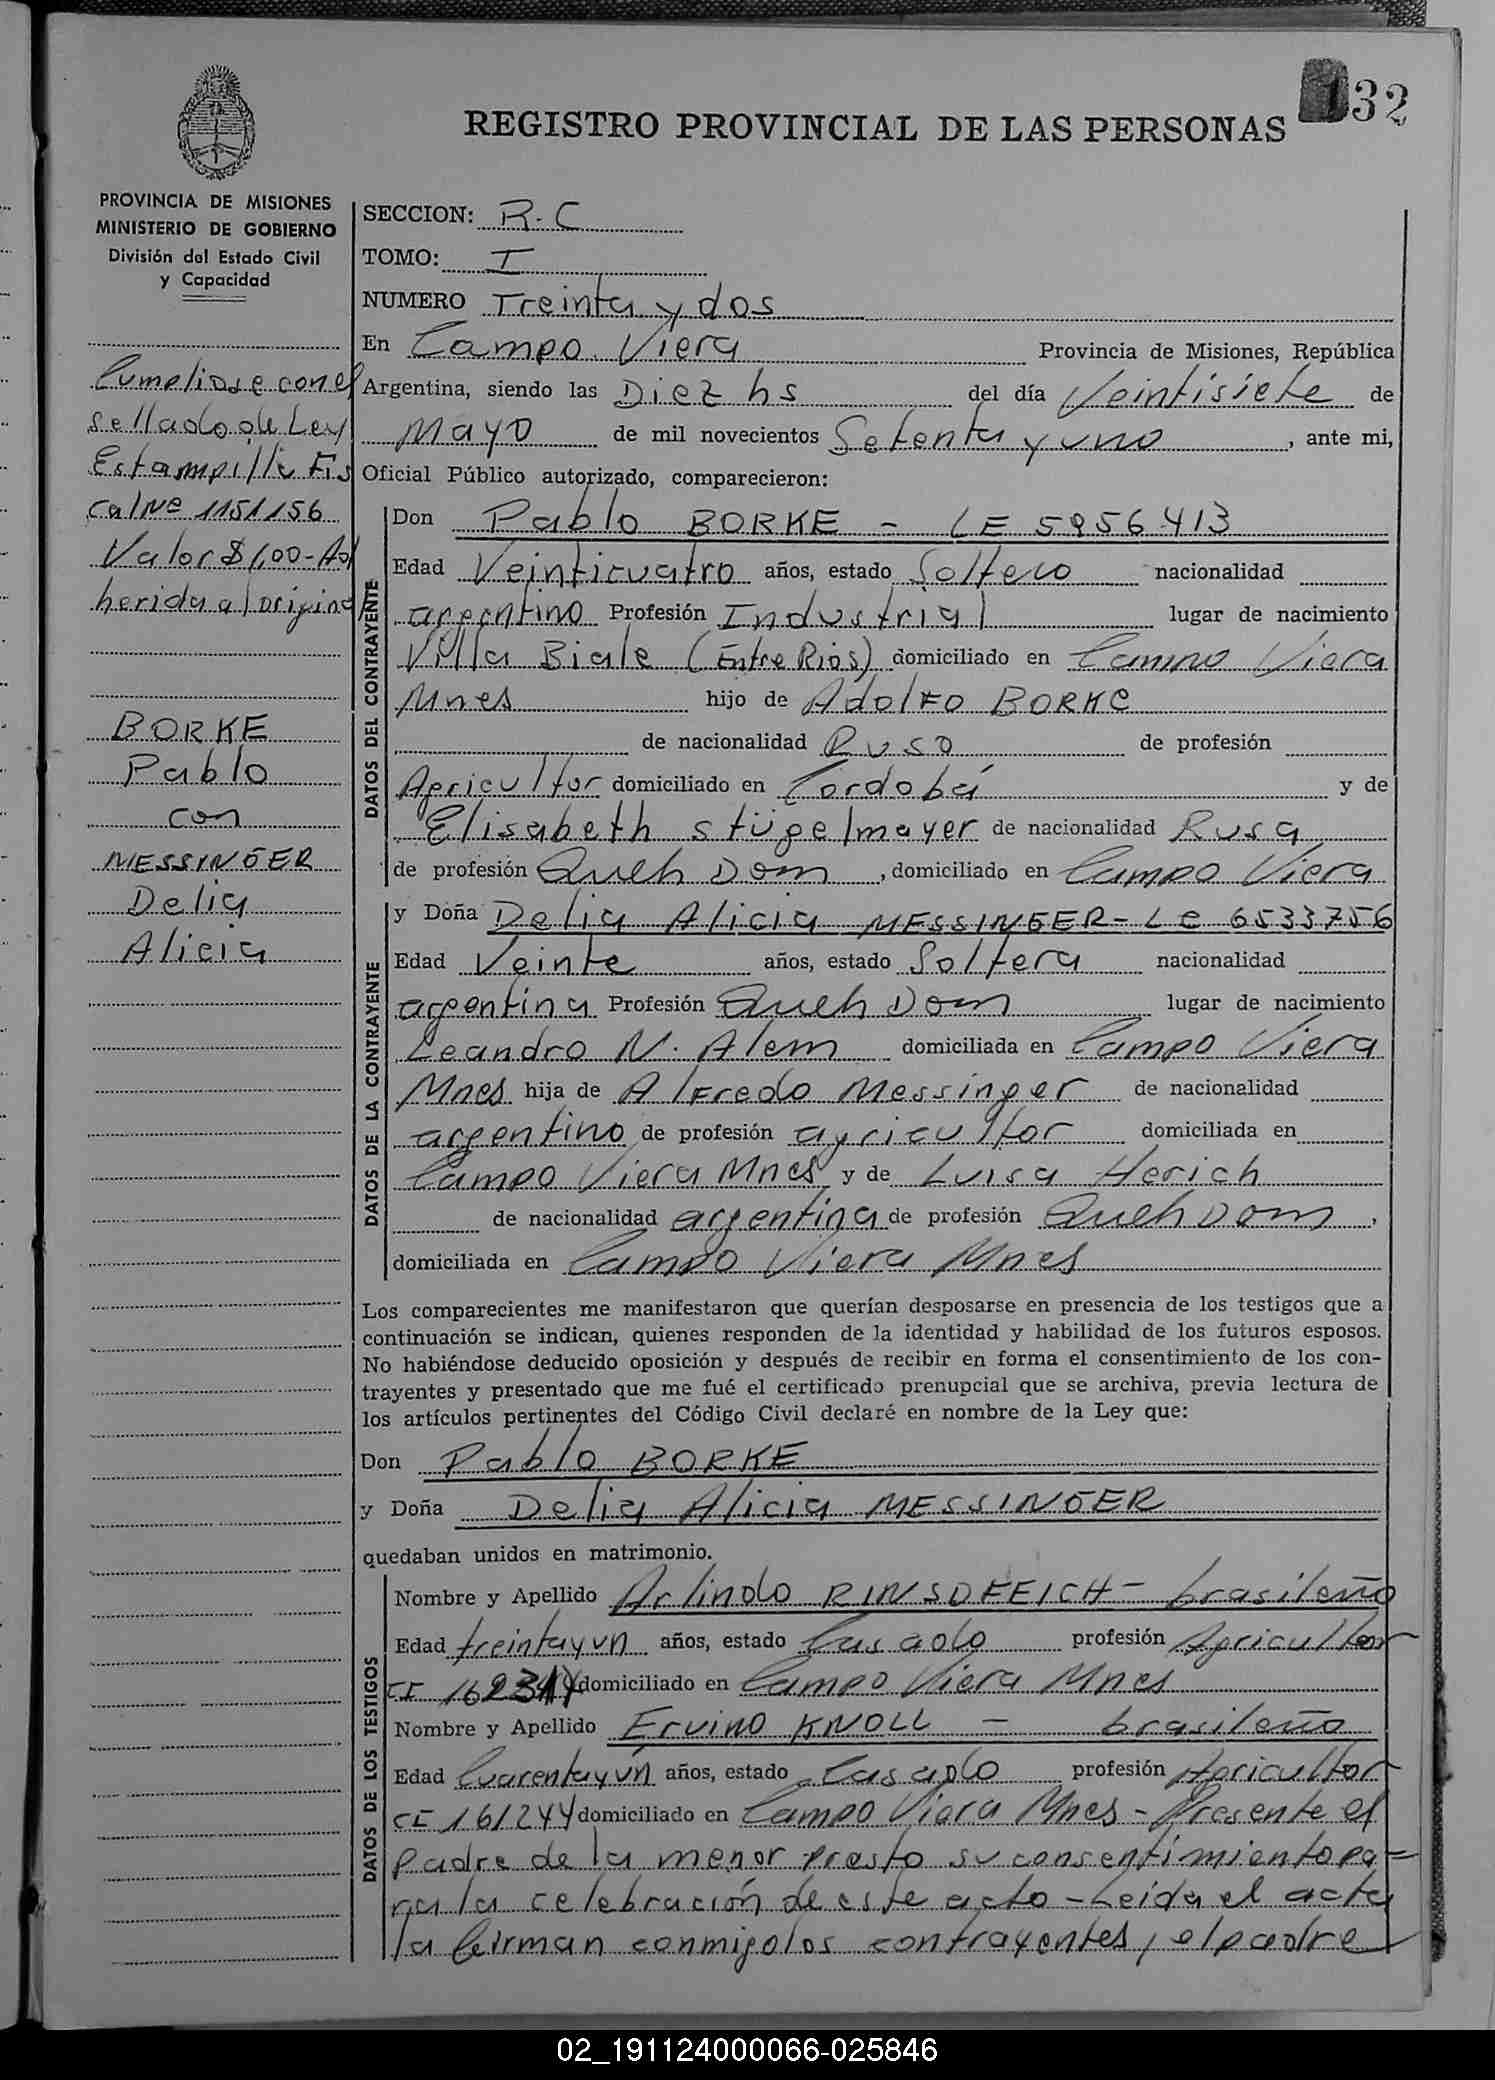 32
REGISTRO PROVINCIAL DE LAS PERSONAS
PROVINCIA DE MISIONES
MINISTERIO DE GOBIERNO
División del Estado Civil
y Capacidad
Cumpliose con el
sellado de Ley
Estampilla Fis
cal Nº 1151156
Valor $ 1,00 - Ad
herida al origina
BORKE
Pablo
con
MESSINGER
Delia
Alicia
SECCION: R.C
TOMO: I
NUMERO Treinta y dos
En Campo Viera Provincia de Misiones, República
Argentina, siendo las Diez hs del día Veintisiete de
Mayo de mil novecientos Setenta y uno, ante mi,
Oficial Público autorizado, comparecieron:
DATOS DEL CONTRAYENTE
Don Pablo BORKE - LE 5956413
Edad Veinticuatro años, estado Soltero nacionalidad
argentino Profesión Industrial lugar de nacimiento
Villa Biale (Entre Rios) domiciliado en Campo Viera
Mnes hijo de Adolfo BORKE
de nacionalidad Ruso de profesión
Agricultor domiciliado en Cordobá y de
Elisabeth stügelmayer de nacionalidad Rusa
de profesión Queh Dom, domiciliado en Campo Viera
DATOS DE LA CONTRAYENTE
y Doña Delia Alicia MESSINGER - LC 6533756
Edad Veinte años, estado Soltera nacionalidad
argentina Profesión Queh Dom lugar de nacimiento
Leandro N. Alem domiciliada en Campo Viera
Mnes hija de Alfredo Messinger de nacionalidad
argentino de profesión agricultor domiciliada en
Campo Viera Mnes y de Luisa Herich
de nacionalidad argentina de profesión Queh Dom,
domiciliada en Campo Viera Mnes
Los comparecientes me manifestaron que querían desposarse en presencia de los testigos que a
continuación se indican, quienes responden de la identidad y habilidad de los futuros esposos.
No habiéndose deducido oposición y después de recibir en forma el consentimiento de los con-
trayentes y presentado que me fué el certificado prenupcial que se archiva, previa lectura de
los artículos pertinentes del Código Civil declaré en nombre de la Ley que:
Don Pablo BORKE
y Doña Delia Alicia MESSINGER
quedaban unidos en matrimonio.
DATOS DE LOS TESTIGOS
Nombre y Apellido Arlindo RINSDFEICH - brasileño
Edad treintayun años, estado Casado profesión Agricultor
CI domiciliado en Campo Viera Mnes
Nombre y Apellido Ervino KNOLL - brasileño
Edad Cuarentayún años, estado Casado profesión Agricultor
CI 161244 domiciliado en Campo Viera Mnes - Presente el
padre de la menor presto su consentimiento pa=
ra la celebración de este acto - Leida el acta
la firman conmigo los contrayentes, el padre
02_191124000066-025846